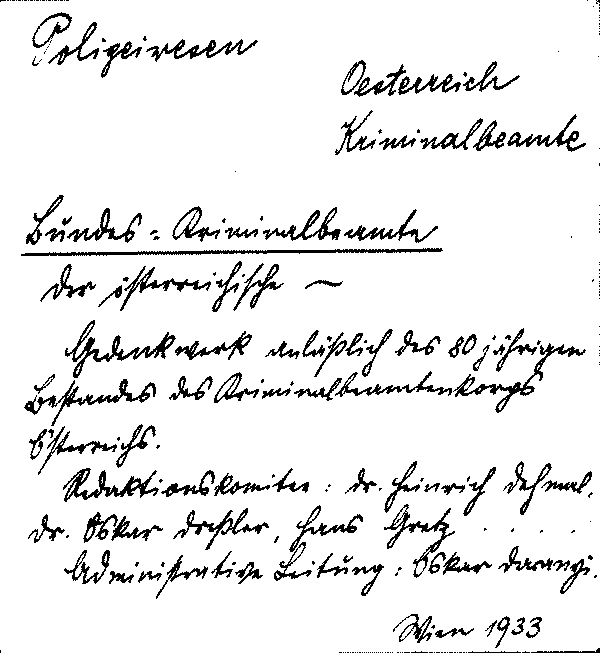 Polizeiwesen
Oesterreich
Kriminalbeamte
Bundes-Kriminalbeamte
Der österreichische —
Gedenkwerk anläßlich des 80 jährigen
Bestandes des Kriminalbeamtenkorps
Österreichs.
Redaktionskomitee: Dr. Heinrich Dehmal,
Dr. Oskar Dreßler, Hans Gretz . . . .
Administrative Leitung: Oskar Daranyi.
Wien 1933